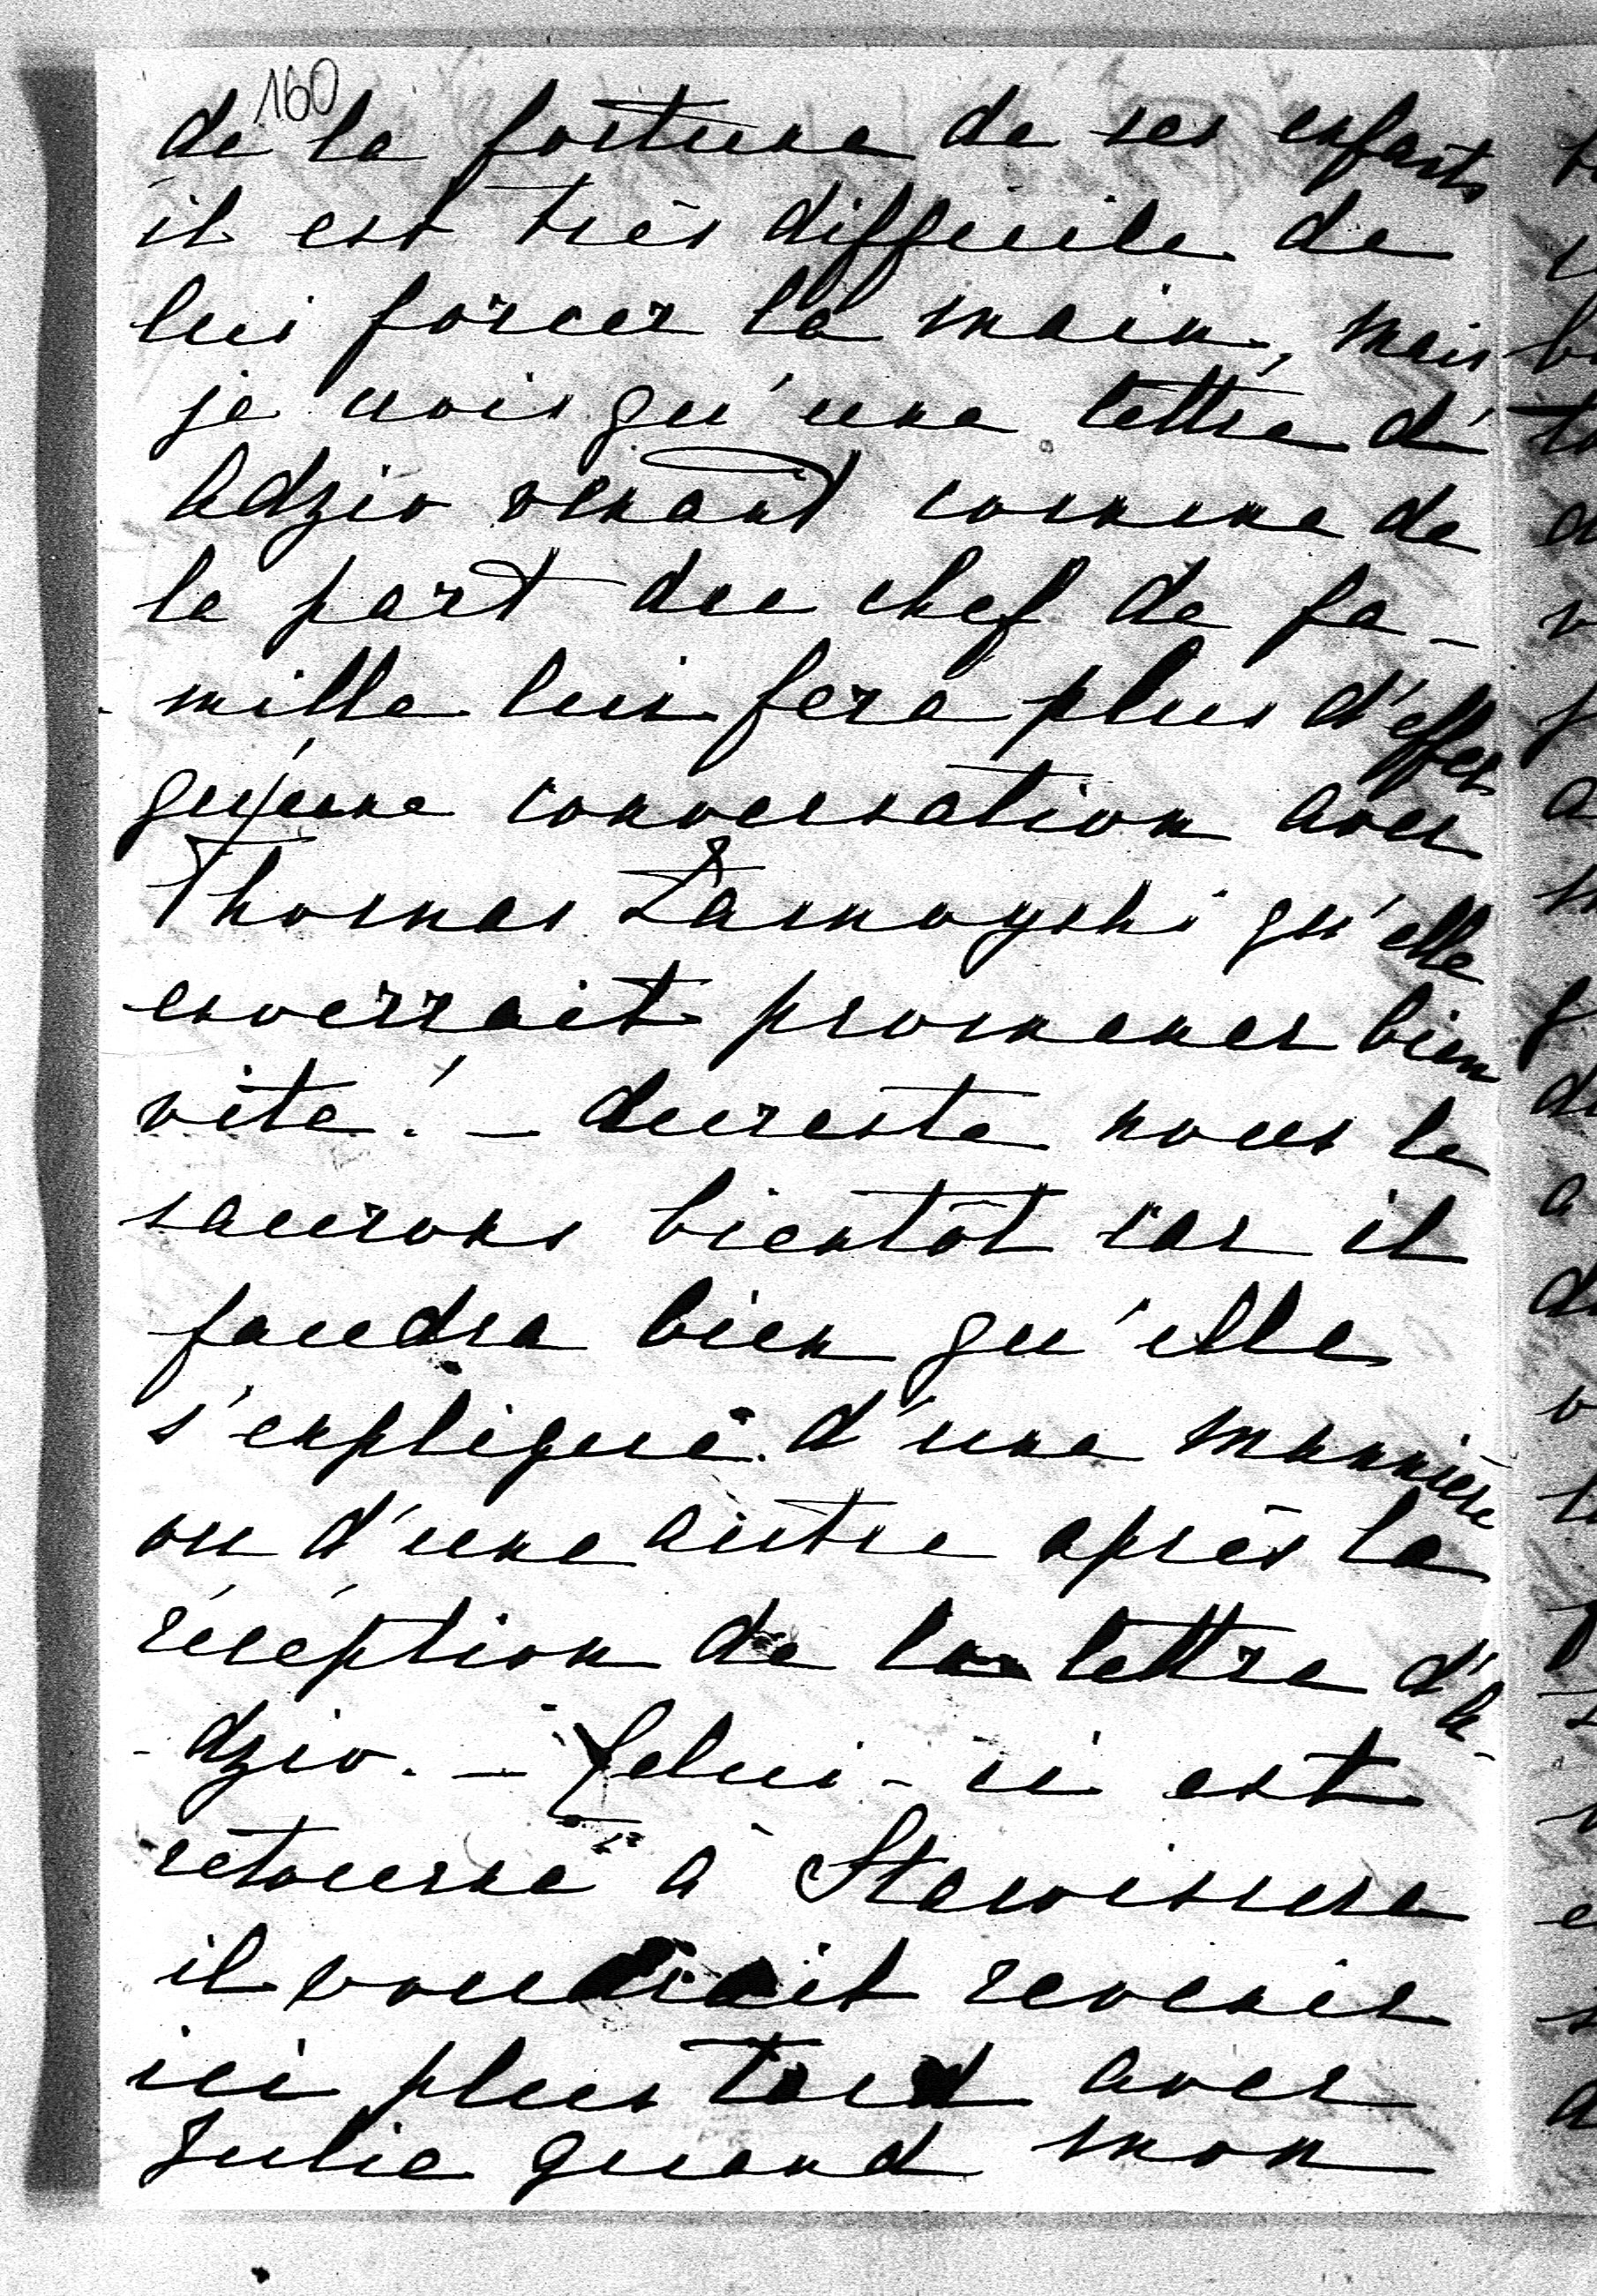 160
de la fortune de ses enfants
il est très difficile de
lui forcer la main, mais
je crois qu'une lettre d'
Adzio venant comme de
la part du chef de fa-
-mille lui fera plus d'effet
qu'une conversation avec
Thomas Zamoyski qu'elle
enverrait promener bien
vite! — dureste nous le
saurons bientôt car il
faudra bien qu'elle
s'explique d'une mannière
ou d'une autre après la
réception de la lettre d'A-
-dzio. — Celui-ci est
retourné à
il voudrait revenir
ici plus tard avec
Julie quand mon